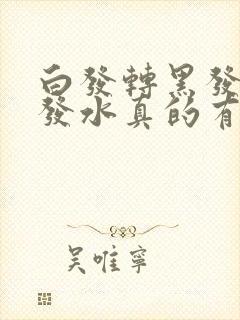 白發轉黑發
發水真的有
吳唯寧